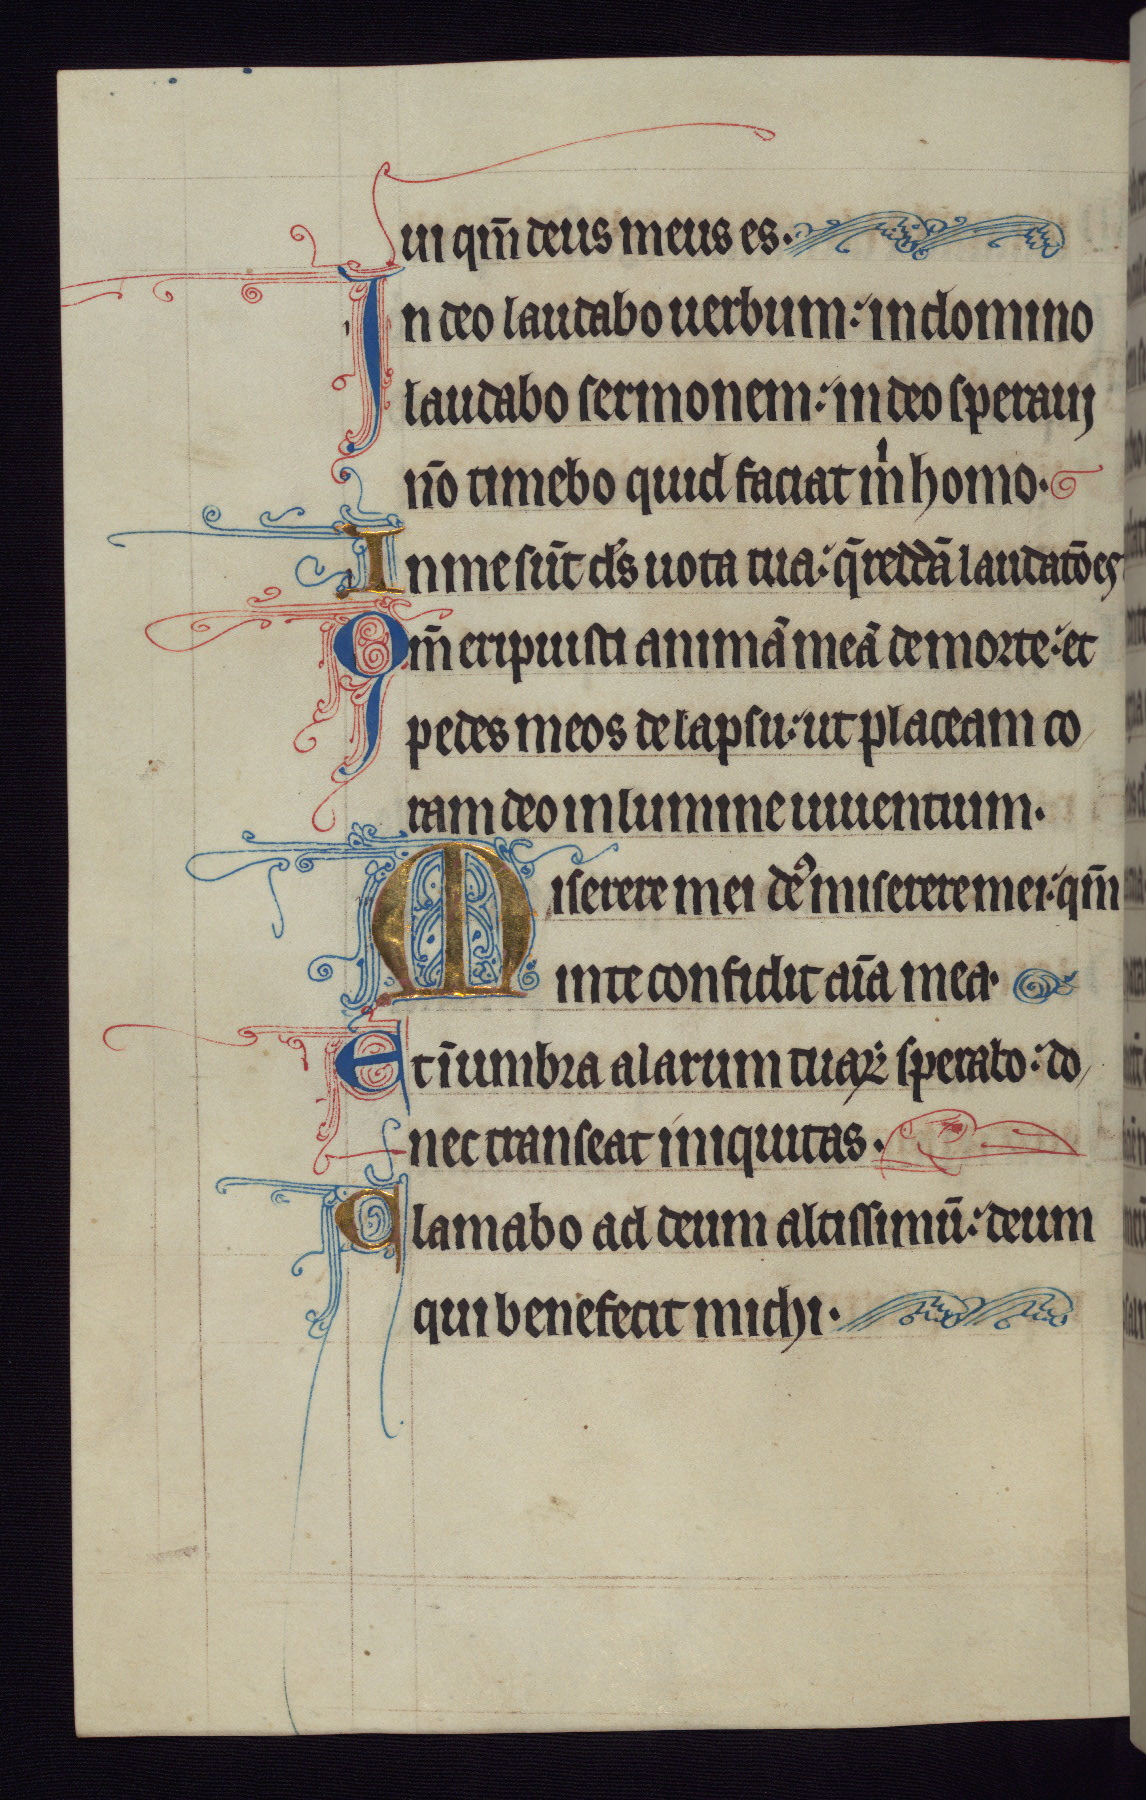 ui qm̄ deus meus es.
In deo laudabo uerbum: in domino
laudabo sermonem: in deo speraui
nō timebo quid faciat m̄ homo.
In me sūt ds̄ uota tua: q̄ reddā laudatōes
Qm̄ eripuisti animā meā de morte: et
pedes meos de lapsu: ut placeam co
ram deo in lumine uiuentium.
Miserere mei deꝰ miserere mei: qm̄
in te confidit aīa mea.
Et ī umbra alarum tuaꝝ sperabo: do
nec transeat iniquitas.
Clamabo ad deum altissimū: deum
qui benefecit michi.